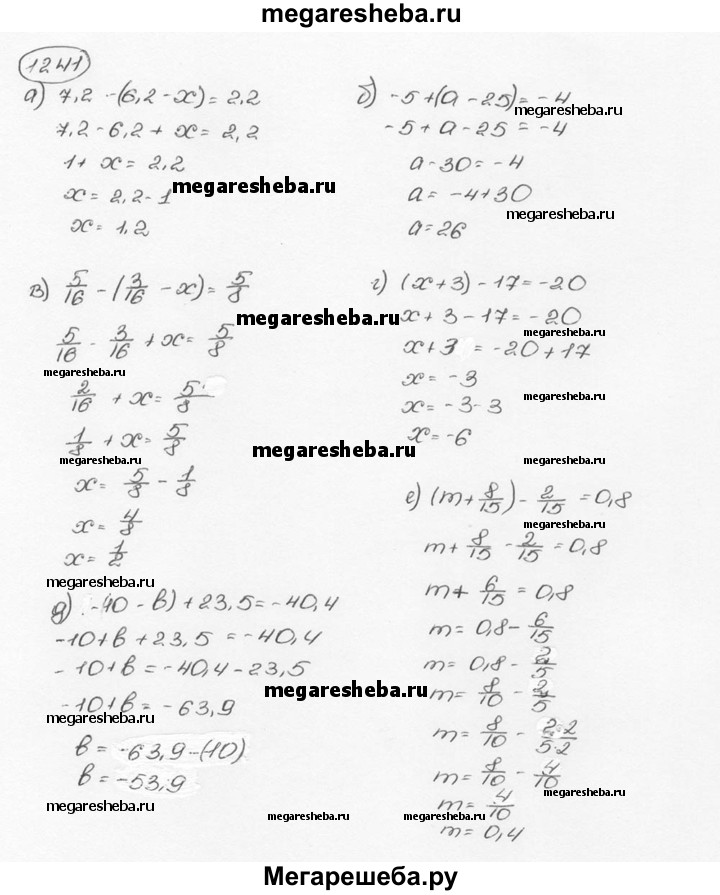 megaresheba.ru
1241
а) 7,2 -(6,2-x)=2,2
7,2-6,2+x=2,2
1+x=2,2
x=2,2-1
x=1,2
megaresheba.ru
б) -5+(a-25)=-4
megaresheba.ru
-5+a-25=-4
a-30=-4
a=-4+30
megaresheba.ru
a=26
в) 5/16-(3/16-x)=5/8
megaresheba.ru
5/16-3/16+x=5/8
megaresheba.ru
2/16+x=5/8
1/8+x=5/8
megaresheba.ru
x=5/8-1/8
x=4/8
x=1/2
megaresheba.ru
г) (x+3)-17=-20
x+3-17=-20
megaresheba.ru
x+3=-20+17
x=-3
megaresheba.ru
x=-3-3
x=-6
megaresheba.ru
megaresheba.ru
д) -10-в)+23,5=-40,4
-10+в+23,5=-40,4
-10+в=-40,4-23,5
megaresheba.ru
-10+в=-63,9
в=-63,9-(10)
в=-53,9
megaresheba.ru
е) (m+8/15)-2/15=0,8
megaresheba.ru
m+8/15-2/15=0,8
megaresheba.ru
m+6/15=0,8
m=0,8-6/15
m=0,8-2/5
megaresheba.ru
m=8/10-2/5
m=8/10-2·2/5·2
m=8/10-4/10
megaresheba.ru
m=4/10
m=0,4
megaresheba.ru
megaresheba.ru
Мегарешеба.ру